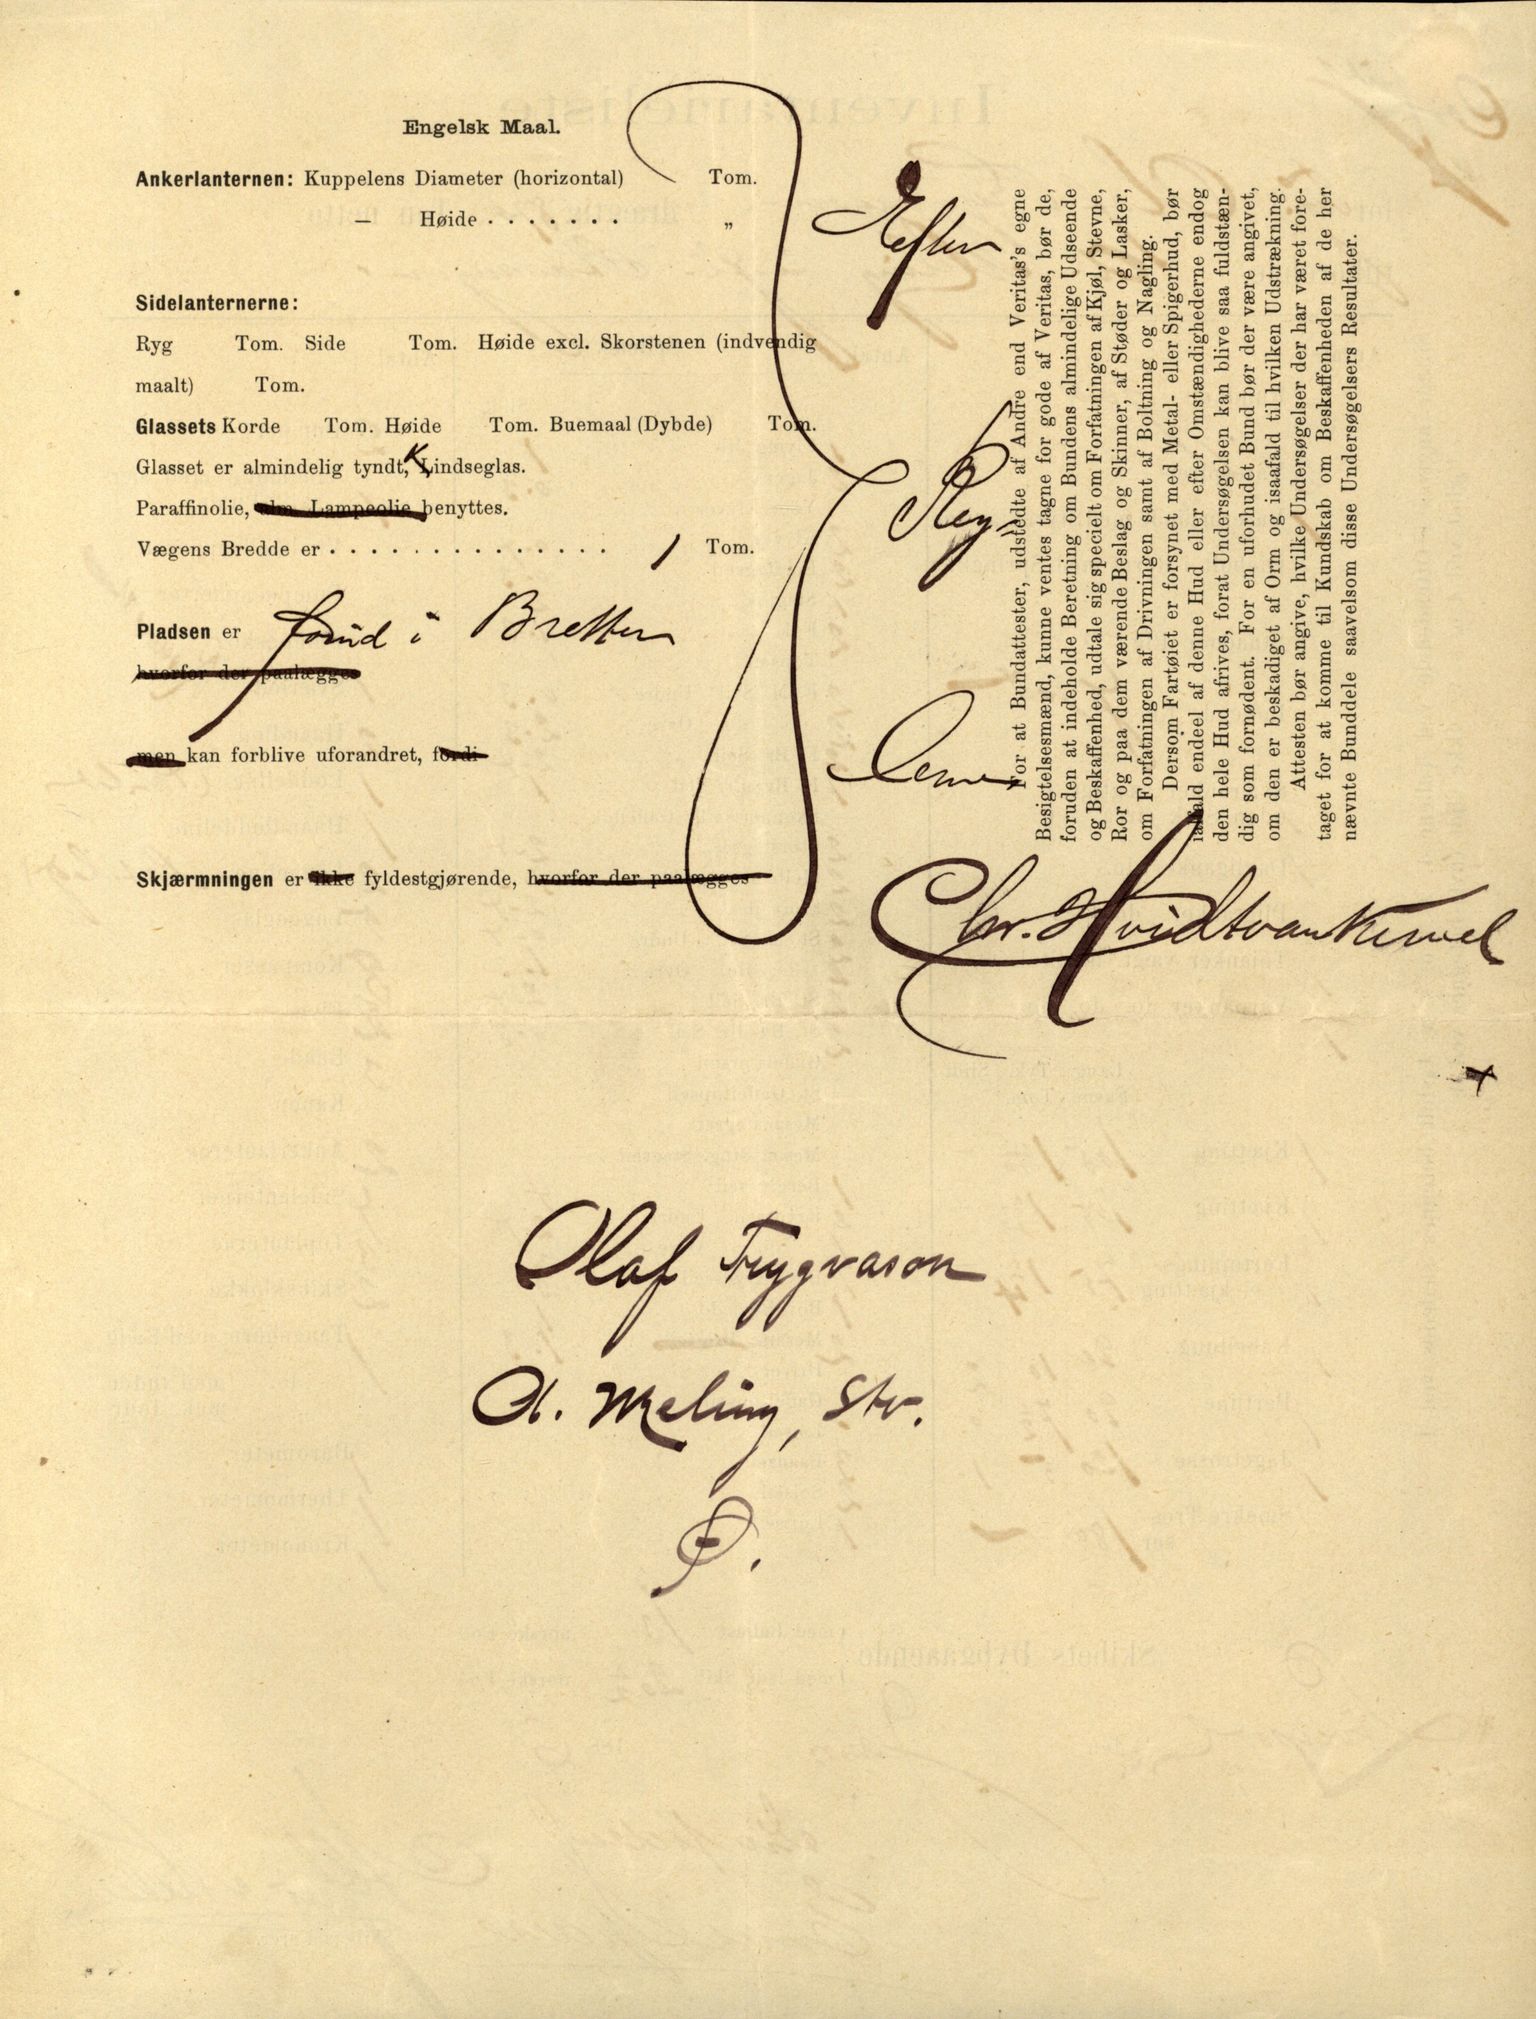 Engelsk Maal.
Ankerlanternen: Kuppelens Diameter (horizontal) Tom.
— Høide . . . . . . . „
Sidelanternerne:
Ryg Tom. Side Tom. Høide excl. Skorstenen (indvendig
maalt) Tom.
Glassets Korde Tom. Høide Tom. Buemaal (Dybde) Tom.
Glasset er almindelig tyndt, Lindseglas.
Paraffinolie, alm. Lampeolie benyttes.
Vægens Bredde er . . . . . . . . . . . . . . 1 Tom.
Pladsen er forud i Bretter
hvorfor der paalægges
men kan forblive uforandret, fordi
Skjærmningen er ikke fyldestgjørende, hvorfor der paalægges
Efter
Reg-
lerne
Chr. Hvidt van Kervel
For at Bundattester, udstedte af Andre end Veritas's egne
Besigtelsesmænd, kunne ventes tagne for gode af Veritas, bør de,
foruden at indeholde Beretning om Bundens almindelige Udseende
og Beskaffenhed, udtale sig specielt om Forfatningen af Kjøl, Stevne,
Ror og paa dem værende Beslag og Skinner, af Støder og Lasker,
om Forfatningen af Drivningen samt af Boltning og Nagling.
Dersom Fartøiet er forsynet med Metal- eller Spigerhud, bør
iafald endeel af denne Hud eller efter Omstændighederne endog
den hele Hud afrives, forat Undersøgelsen kan blive saa fuldstæn-
dig som fornødent. For en uforhudet Bund bør der være angivet,
om den er beskadiget af Orm og isaafald til hvilken Udstrækning.
Attesten bør angive, hvilke Undersøgelser der har været fore-
taget for at komme til Kundskab om Beskaffenheden af de her
nævnte Bunddele saavelsom disse Undersøgelsers Resultater.
Olaf Trygvason
A. Meling, Stv.